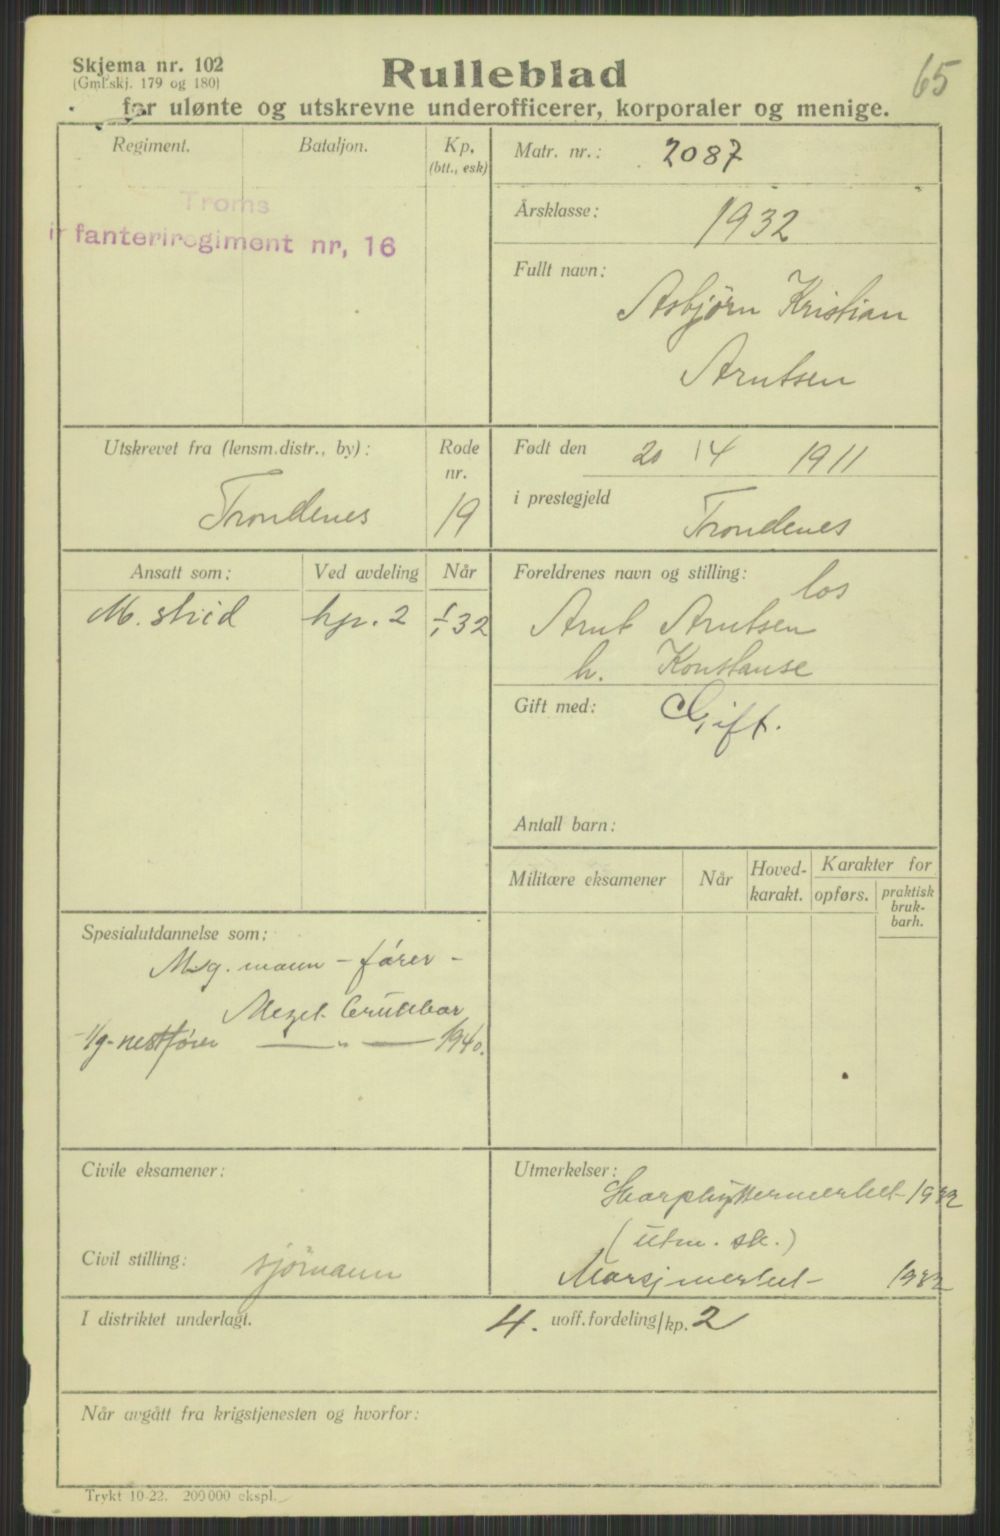 65
Skjema nr. 102
(Gml. skj. 179 og 180)
Rulleblad
for ulønte og utskrevne underofficerer, korporaler og menige.
Regiment.
Bataljon.
Kp.
(btt., esk)
Troms
infanteriregiment nr, 16
Matr. nr.: 2087
Årsklasse: 1932
Fullt navn:
Asbjørn Kristian
Arntsen
Utskrevet fra (lensm.distr., by):
Trondenes
Rode
nr.
19
Født den 20 /4 1911
i prestegjeld
Trondenes
Ansatt som:
Ved avdeling
Når
M. strid
kp. 2
1/1 32
Foreldrenes navn og stilling:
los
Arnt Arntsen
h. Konstanse
Gift med: Gift.
Antall barn:
Militære eksamener
Når
Hoved-
karakt.
Karakter for
opførs.
praktisk
bruk-
barh.
Spesialutdannelse som:
Msg. mann - fører -
Meget brukbar
-"- 1940.
Civile eksamener:
Civil stilling: sjømann
Utmerkelser:
Skarpskyttermerket 1932
(utm. sk.)
Marsjmerket - 1932
I distriktet underlagt.
4. uoff.fordeling/kp. 2
Når avgått fra krigstjenesten og hvorfor:
Trykt 10-22. 200 000 ekspl.